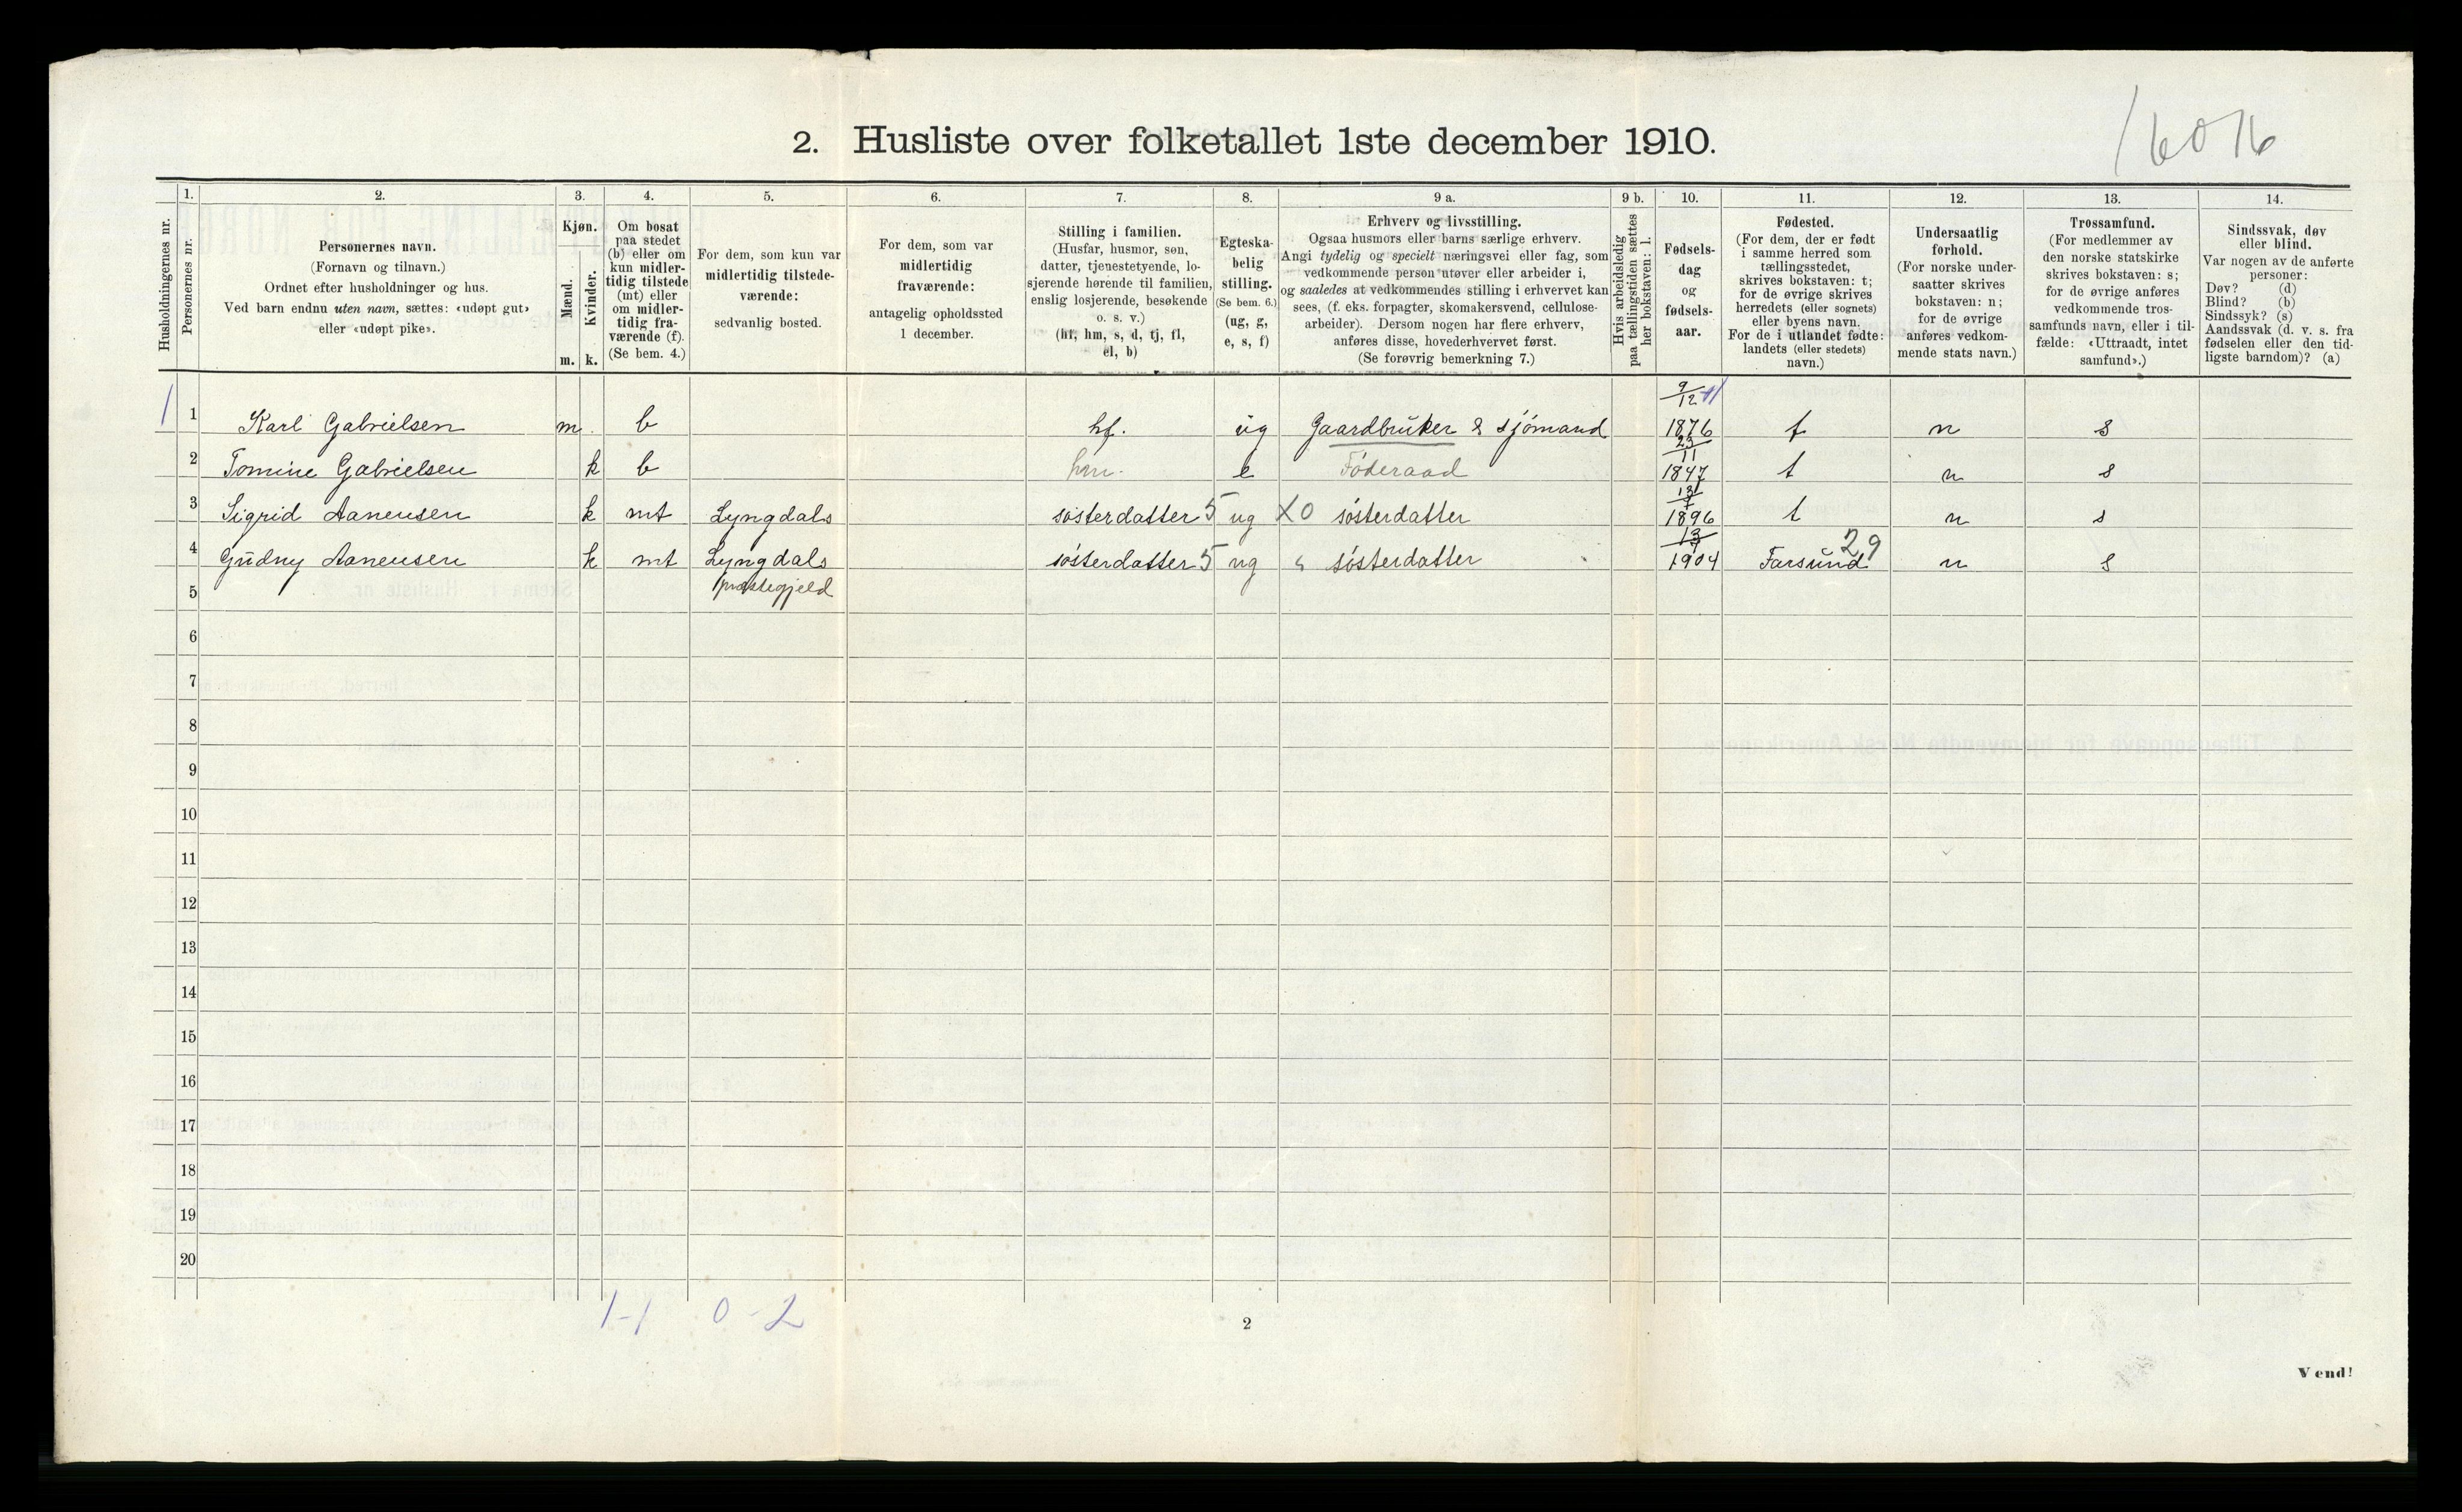 16076
2. Husliste over folketallet 1ste december 1910.
Husholdningernes nr.
1. Personernes nr.
2. Personernes navn.
(Fornavn og tilnavn.)
Ordnet efter husholdninger og hus.
Ved barn endnu uten navn, sættes: «udøpt gut»
eller «udøpt pike».
3. Kjøn.
Mænd. Kvinder.
m. k.
4. Om bosat
paa stedet
(b) eller om
kun midler-
tidig tilstede
(mt) eller
om midler-
tidig fra-
værende (f).
(Se bem. 4.)
5. For dem, som kun var
midlertidig tilstede-
værende:
sedvanlig bosted.
6. For dem, som var
midlertidig
fraværende:
antagelig opholdssted
1 december.
7. Stilling i familien.
(Husfar, husmor, søn,
datter, tjenestetyende, lo-
sjerende hørende til familien,
enslig losjerende, besøkende
o. s. v.)
(hf, hm, s, d, tj, fl,
el, b)
8. Egteska-
belig
stilling.
(Se bem. 6.)
(ug, g,
e, s, f)
9 a. Erhverv og livsstilling.
Ogsaa husmors eller barns særlige erhverv.
Angi tydelig og specielt næringsvei eller fag, som
vedkommende person utøver eller arbeider i,
og saaledes at vedkommendes stilling i erhvervet kan
sees, (f. eks. forpagter, skomakersvend, cellulose-
arbeider). Dersom nogen har flere erhverv,
anføres disse, hovederhvervet først.
(Se forøvrig bemerkning 7.)
9 b. Hvis arbeidsledig
paa tællingstiden sættes
her bokstaven: l.
10. Fødsels-
dag
og
fødsels-
aar.
11. Fødested.
(For dem, der er født
i samme herred som
tællingsstedet,
skrives bokstaven: t;
for de øvrige skrives
herredets (eller sognets)
eller byens navn.
For de i utlandet fødte:
landets (eller stedets)
navn.)
12. Undersaatlig
forhold.
(For norske under-
saatter skrives
bokstaven: n;
for de øvrige
anføres vedkom-
mende stats navn.)
13. Trossamfund.
(For medlemmer av
den norske statskirke
skrives bokstaven: s;
for de øvrige anføres
vedkommende tros-
samfunds navn, eller i til-
fælde: «Uttraadt, intet
samfund».)
14. Sindssvak, døv
eller blind.
Var nogen av de anførte
personer:
Døv? (d)
Blind? (b)
Sindssyk? (s)
Aandssvak (d. v. s. fra
fødselen eller den tid-
ligste barndom)? (a)
1 1 Karl Gabrielsen m. b hf. ug Gaardbruker & sjömand 9/12 1876 t n s
2 Tomine Gabrielsen k b hm. e Föderaad 23/11 1847 t n s
3 Sigrid Aanensen k mt Lyngdals sösterdatter 5 ug X0 sösterdatter 1896 t n s
4 Gudny Aanensen k mt Lyngdals sösterdatter 5 ug " sösterdatter 1904 Farsund 29 n s
5 præstegjeld
6
7
8
9
10
11
12
13
14
15
16
17
18
19
20
1-1 0-2
2
Vend!